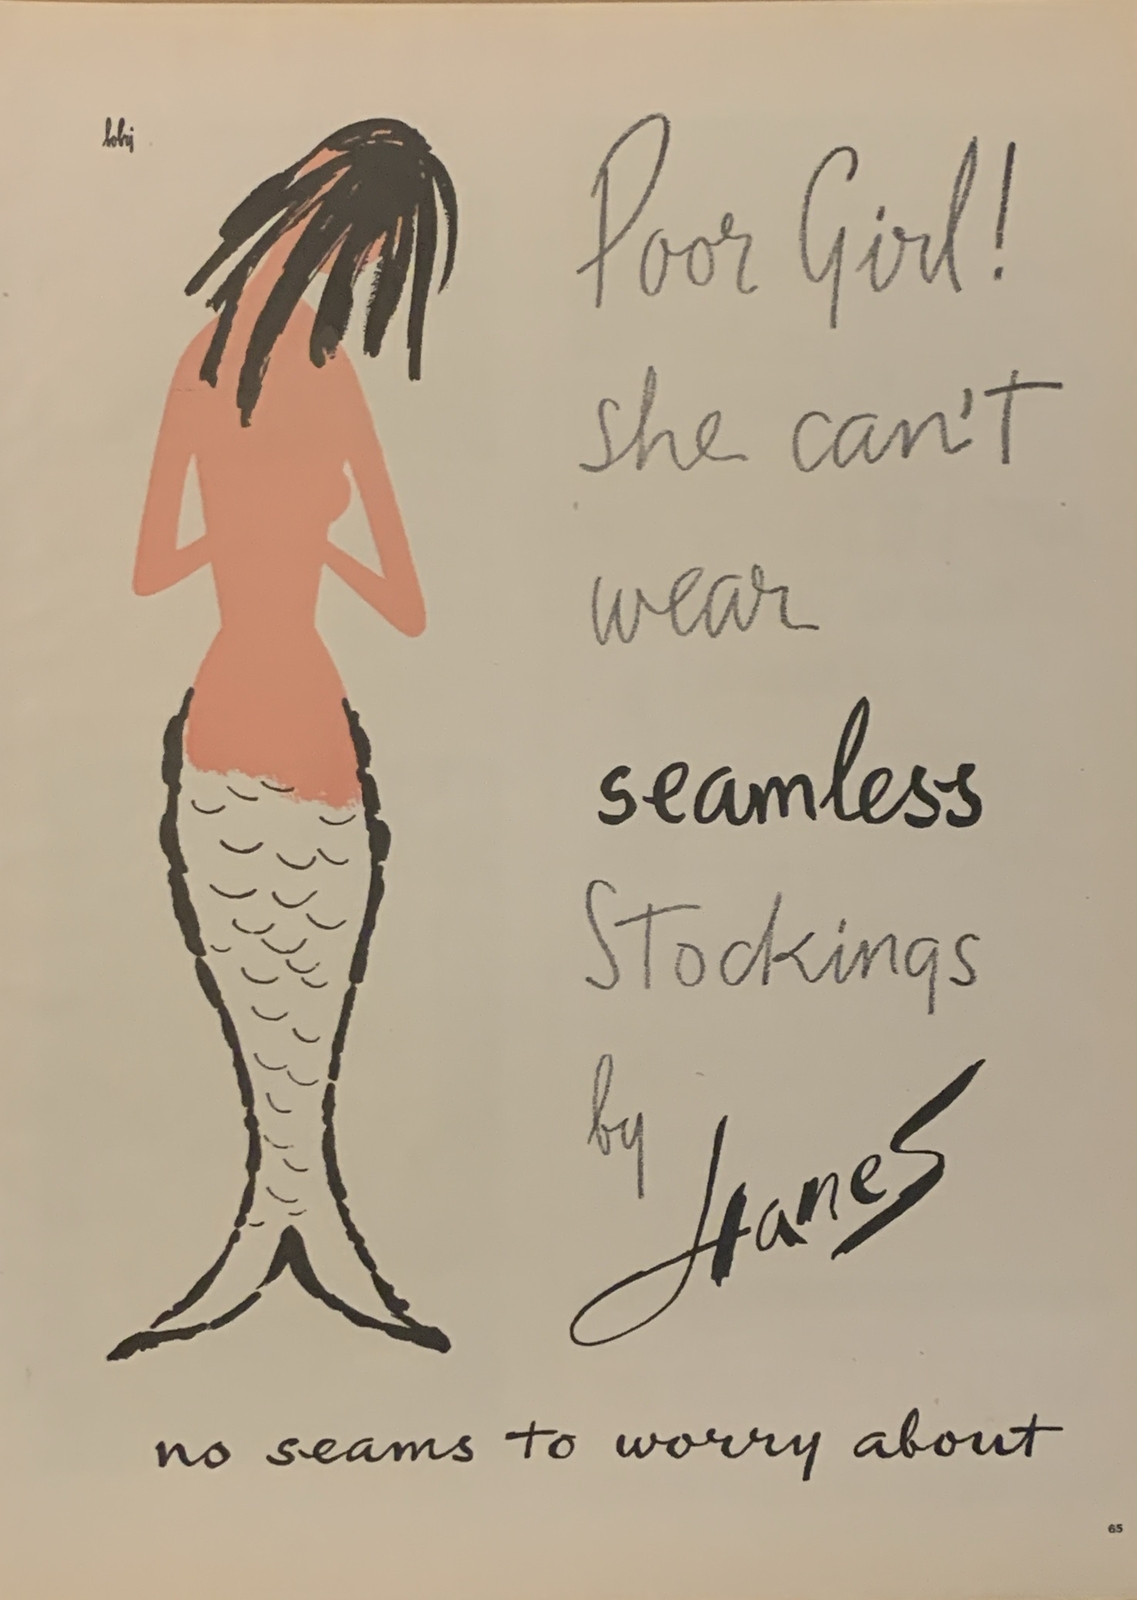 bobri
Poor Girl!
she can't
wear
seamless
Stockings
by Hanes
no seams to worry about
65